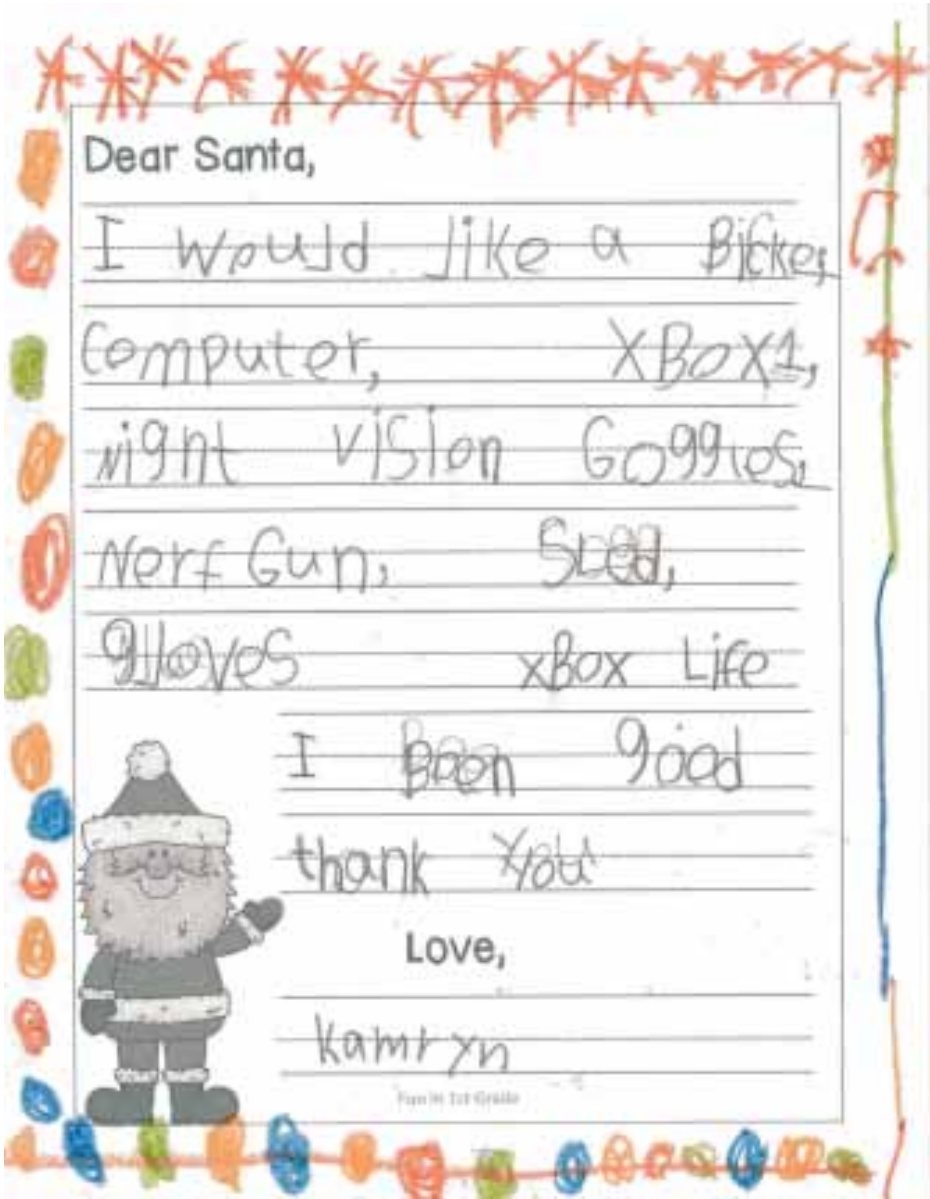 Dear Santa,
I would like a Bicke,
Computer, XBOX1,
night vision Goggles,
Nerf Gun, Sled,
glloves xBox Life
I Been good
thank you
Love,
Kamryn
Fun in 1st Grade